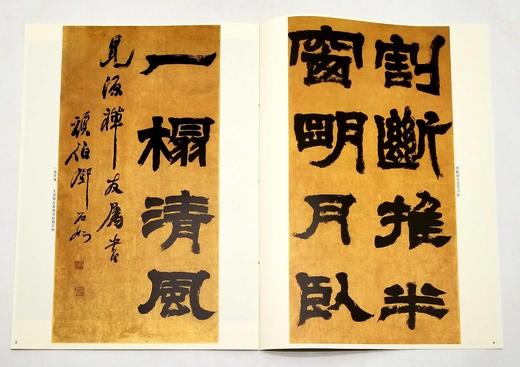 割斷推半
窗明月臥
一榻清風
見源禪友屬書
頑伯鄧石如